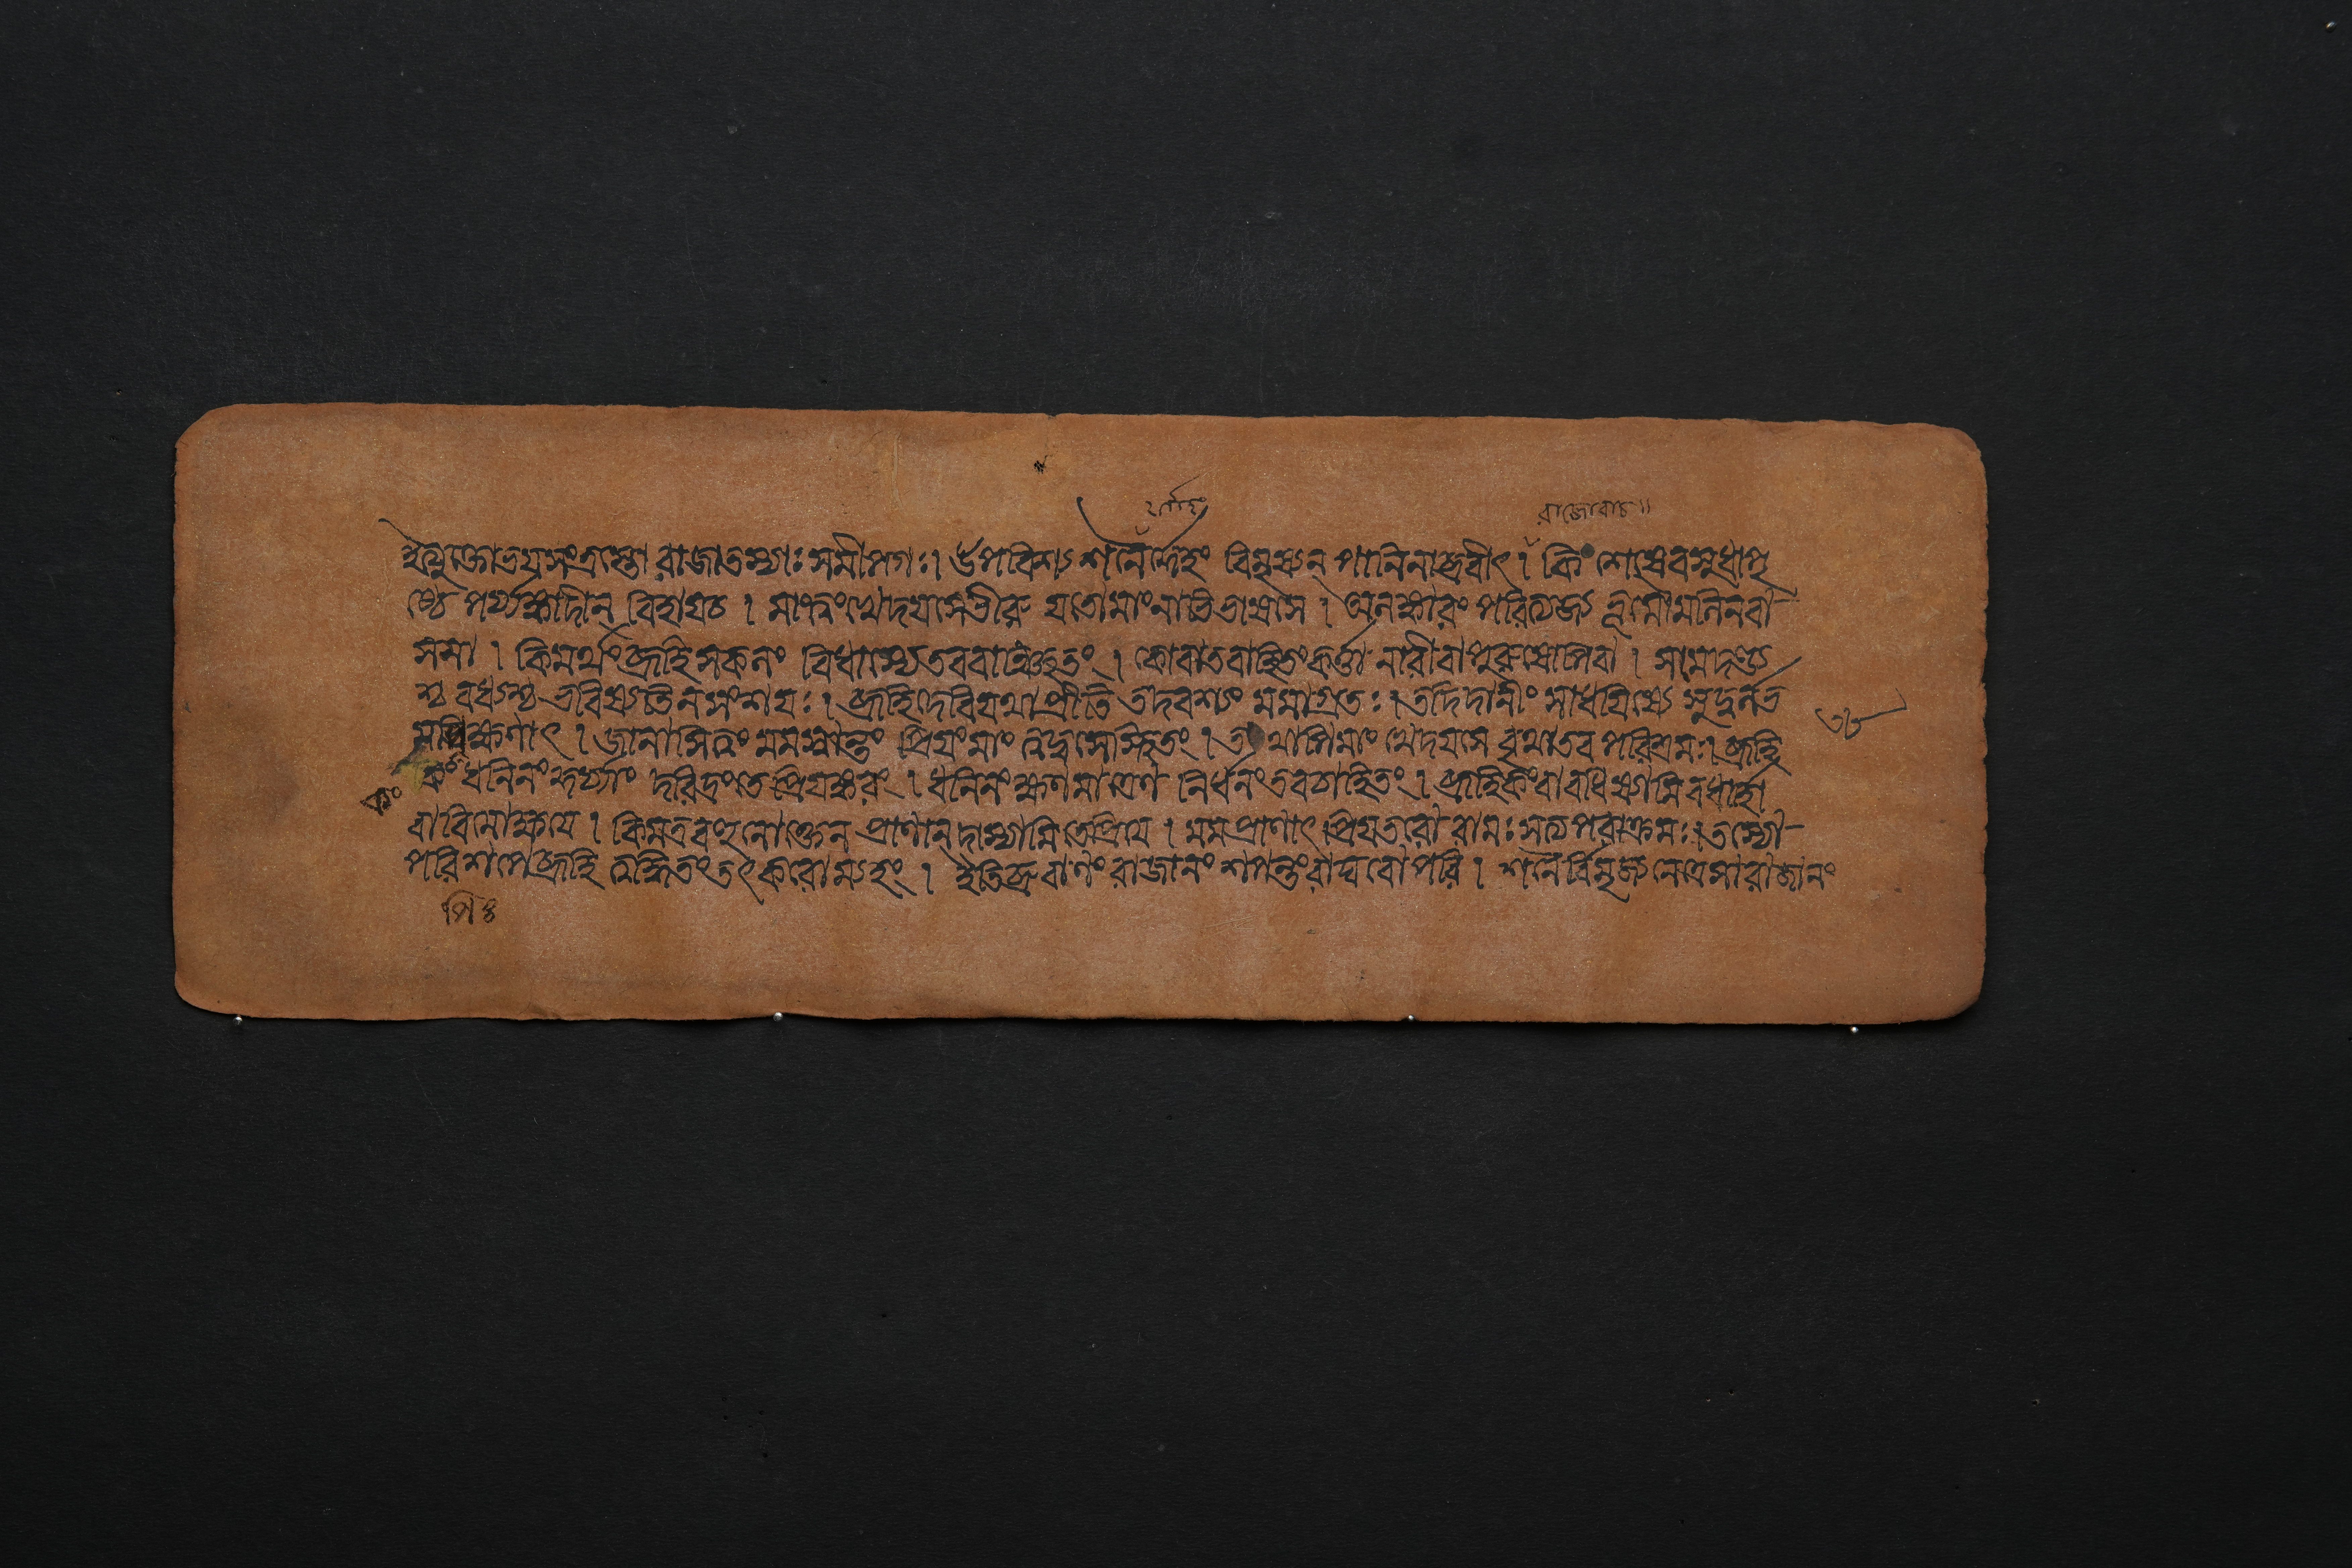 র্ত্তাহং
রাজোবাচ॥
ইত্যুক্তো ভয়সংত্রস্তো রাজা তস্যাঃ সমীপগঃ। উপবিশ্য শনৈর্দ্দেহং বিমৃষ্যন্ পাণিনাব্রবীৎ। কিং শেষে বসুধাপৃ
ষ্ঠে পর্য্যঙ্কাদীন্ বিহায় চ । মাং ত্বং খেদয়সে ভীরু যতো মাং নাভিভাষসে । অলঙ্কারং পরিত্যজ্য ভূমৌ মলিনবা-
সসা । কিমর্থং ব্রূহি সকলং বিধাস্যে তব বাঞ্ছিতং । কো বা তবাহিতং কর্ত্তা নারী বা পুরুষোপি বা । স মে দণ্ড্য
শ্চ বধ্যশ্চ ভবিষ্যতি ন সংশয়ঃ। ব্রূহি দেবি যথা প্রীতি তদবশ্যং মমাগ্রতঃ। তদিদানীং সাধয়িষ্যে সুদুর্লভ
মপি ক্ষণাৎ । জানাসি ত্বং মম স্বান্তং প্রিয়ং মাং ত্বদ্বশে স্থিতং । তথাপি মাং খেদয়সে বৃথা তব পরিশ্রমঃ। ব্রূহি
কং ধনিনং কুর্য্যাং দরিদ্রং তে প্রিয়ঙ্করং । ধনিনং ক্ষণমাত্রেণ নির্ধনং তব চাহিতং । ব্রূহি কং বা বধিষ্যামি বধার্হো
বা বিমোক্ষ্যে । কিমত্র বহুনোক্তেন প্রাণান্ দাস্যামি তে প্রিয়ে । মম প্রাণাৎ প্রিয়তরো রামঃ সত্যপরাক্রমঃ। তস্যো-
পরি শপে ব্রূহি ত্বদ্ধিতং তৎ করোম্যহং । ইতি ব্রুবাণং রাজানং শপন্তং রাঘবোপরি । শনৈর্বিমৃজ্য নেত্রে সা রাজানং